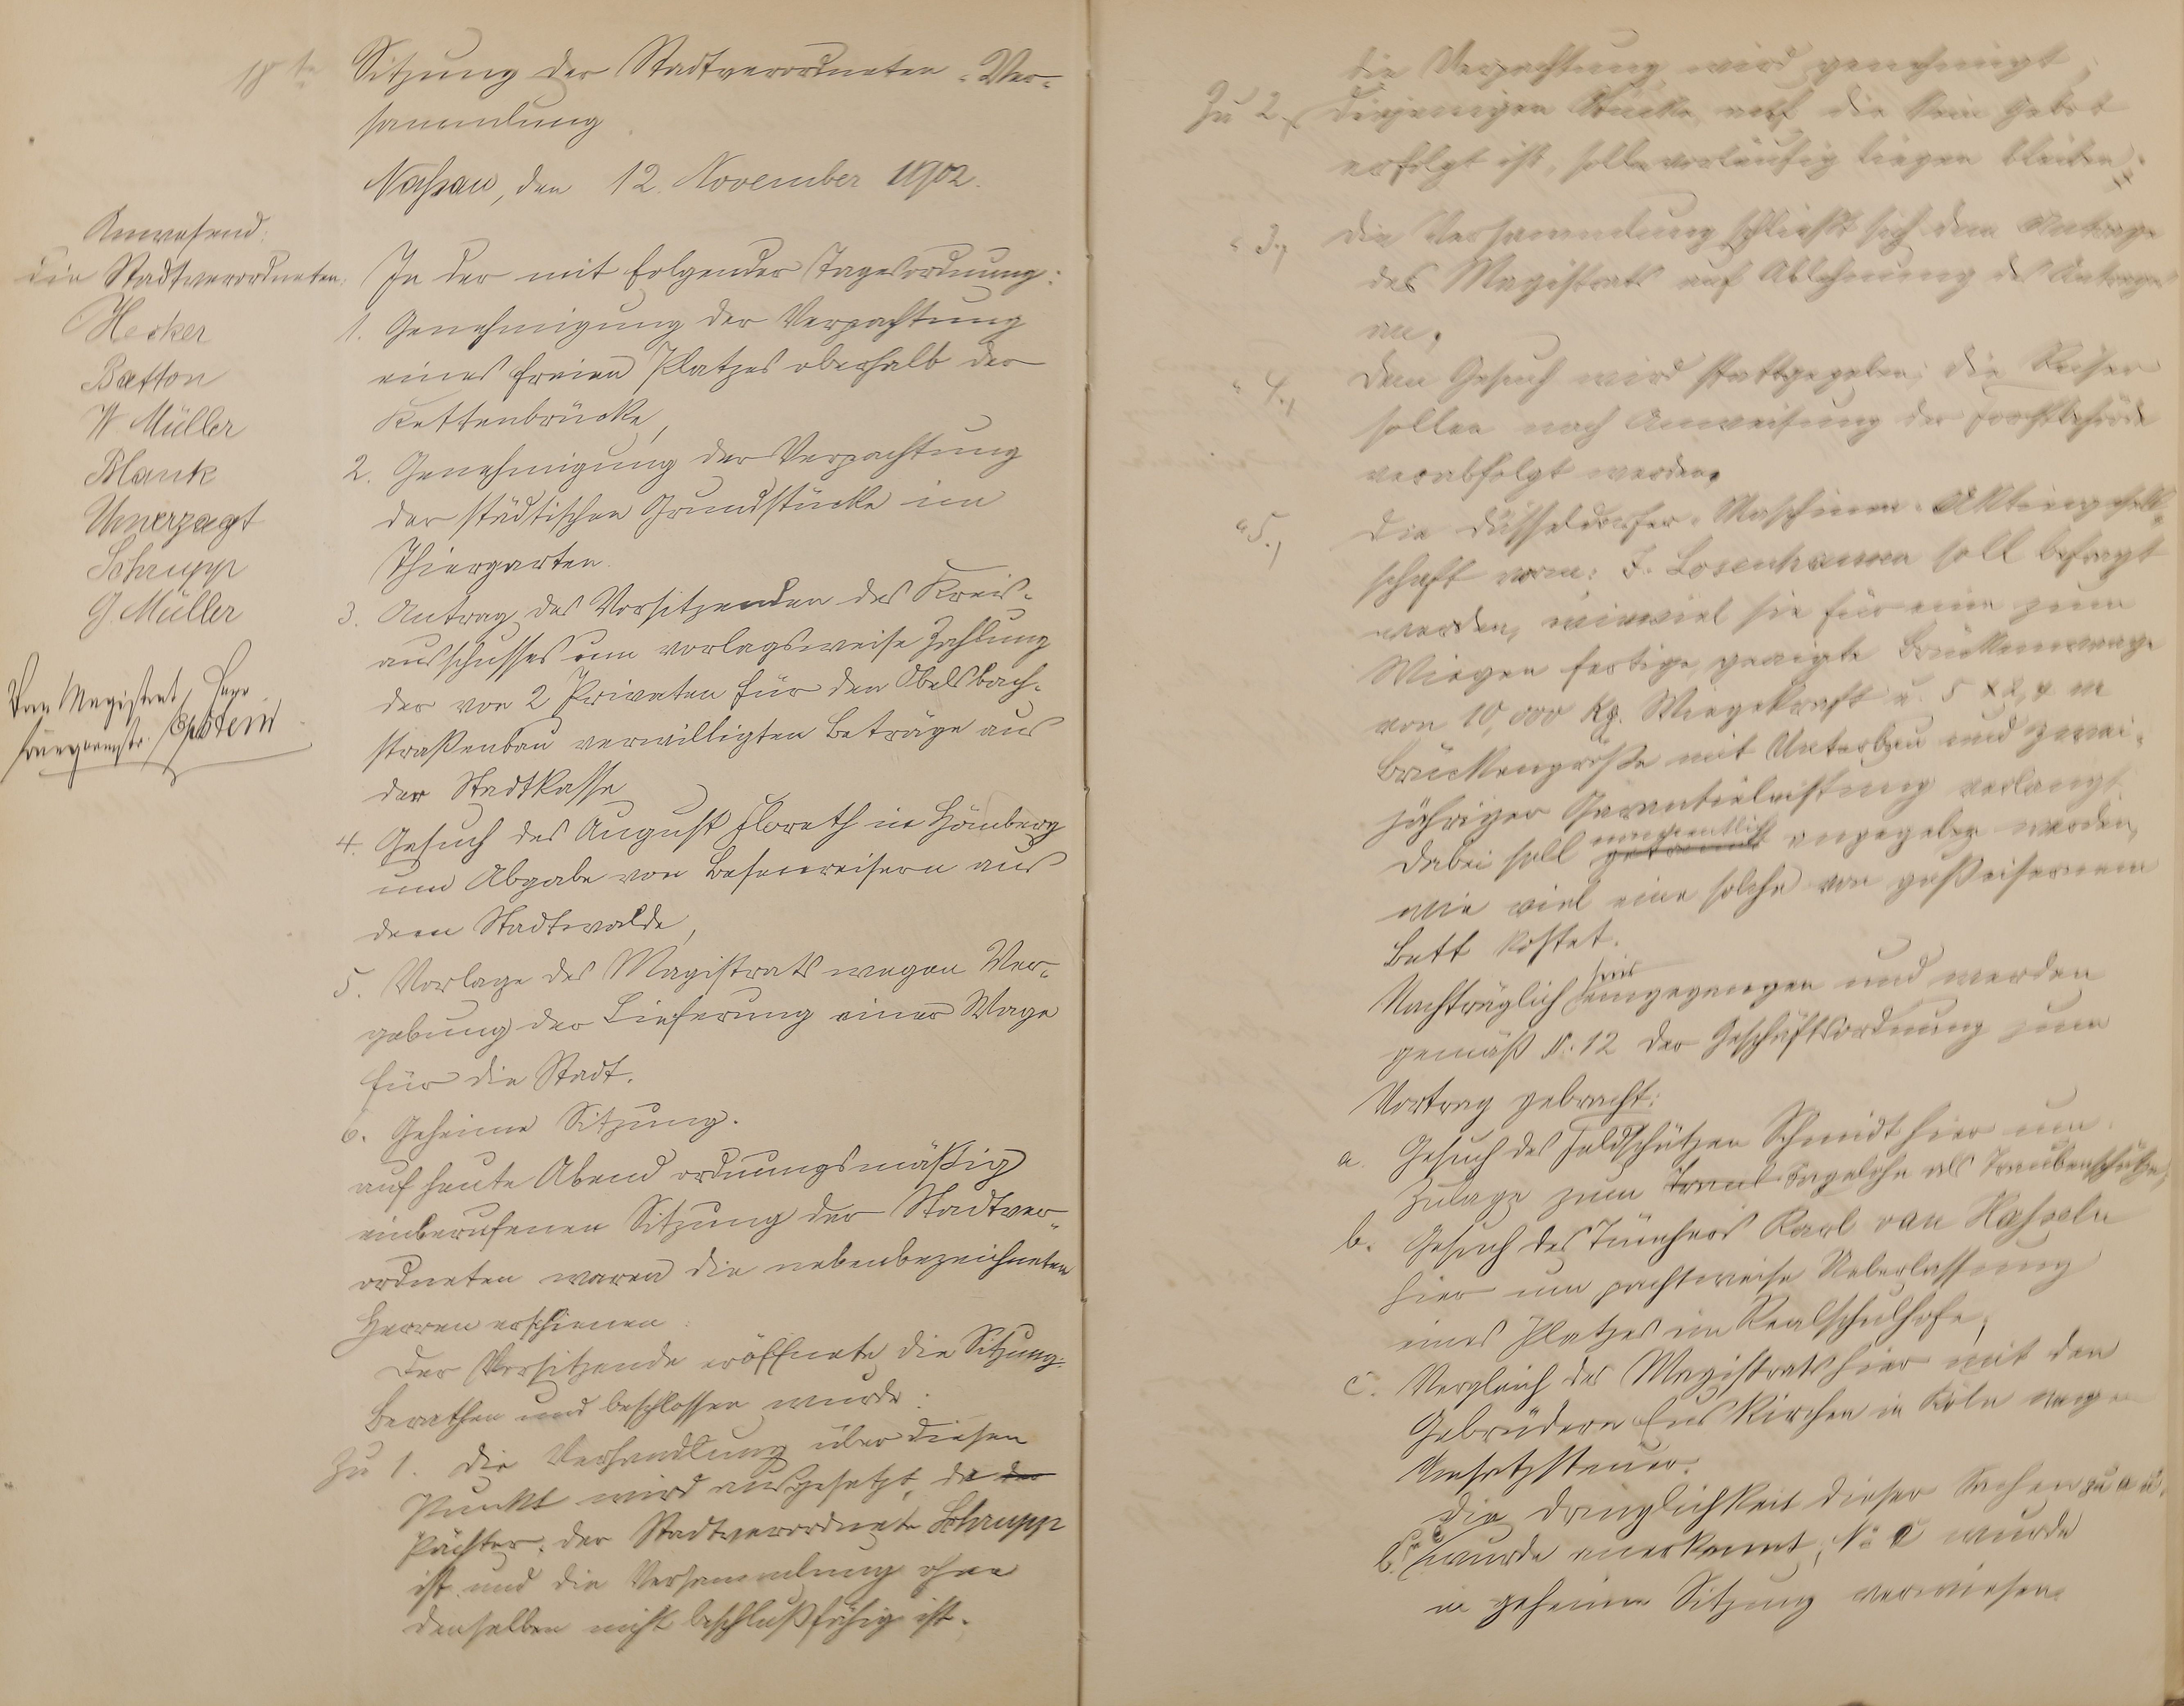 18te Sitzung der Stadtverordneten-Ver-
sammlung
Nassau, den 12. November 1902.
Anwesend:
die Stadtverordneten:
Hecker
Batton
W Müller
Blank
Unverzagt
Schrupp
G. Müller
Vom Magistrat, Herr
Bürgermstr.
In der mit folgender Tagesordnung:
1. Genehmigung der Verpachtung
eines freien Platzes oberhalb der
Kettenbrücke,
2. Genehmigung der Verpachtung
der städtischen Grundstücke im
Thiergarten.
3. Antrag des Vorsitzenden des Kreis-
ausschusses um vorlagsweise Zahlung
der von 2 Privaten für den Obelsbach-
straßenbau verwilligten Beträge aus
der Stadtkasse
4. Gesuch des August Florath in Hömberg
um Abgabe von Besenreisern aus
dem Stadtwalde,
5. Vorlage des Magistrats wegen Ver-
gebung der Lieferung einer Wage
für die Stadt.
6. Geheime Sitzung.
auf heute Abend ordnungsmäßig
einberufenen Sitzung der Stadtver-
ordneten waren die nebenbezeichneten
Herren erschienen.
Der Vorsitzende eröffnete die Sitzung.
Berathen und beschlossen wurde:
Zu 1. Die Verhandlung über diesen
Punkt wird ausgesetzt, da der
Pächter, der Stadtverordnete Schrupp
ist und die Versammlung ohne
denselben nicht beschlußfähig ist.
Zu 2., Die Verpachtung wird genehmigt,
diejenigen Stücke auf die kein Gebot
erfolgt ist, solle vorläufig liegen bleiben.
" 3., Die Versammlung schließt sich dem Antrage
des Magistrats auf Ablehnung des Antrages
an.
" 4., Dem Gesuch wird stattgegeben; die Reiser
sollen nach Anweisung der Forstbehörde
verabfolgt werden.
" 5., Die Düsseldorfer-Maschinen-Aktiengesell-
schaft vorm: J. Losenhausen soll befragt
werden, wieviel sie für eine zum
Wiegen fertige, geaigte Brückenwage
von 10,000 Kg. Wiegekraft u. 5 x 2,4 m
Brückengröße mit Unterbau und zwei-
jähriger Garantieleistung verlangt.
Dabei soll namentlich angegeben werden,
wie viel eine solche von gußeisernem
Bett kostet.
Nachträglich sind eingegangen und werden
gemäß §. 12 der Geschäftsordnung zum
Vortrag gebracht:
a. Gesuch des Feldschützen Schmidt hier um
Zulage zum Tagelohn als Traubenschütze,
b. Gesuch des Tünchers Karl van Haßeln
hier um pachtweise Ueberlassung
eines Platzes im Realschulhofe,
c. Vergleich des Magistrats hier mit den
Gebrüdern Euskirchen in Köln wegen
Umsatzsteuer.
Die Dringlichkeit dieser Sachen zu a u.
b. wurde anerkannt; No c wurde
in geheime Sitzung verwiesen.